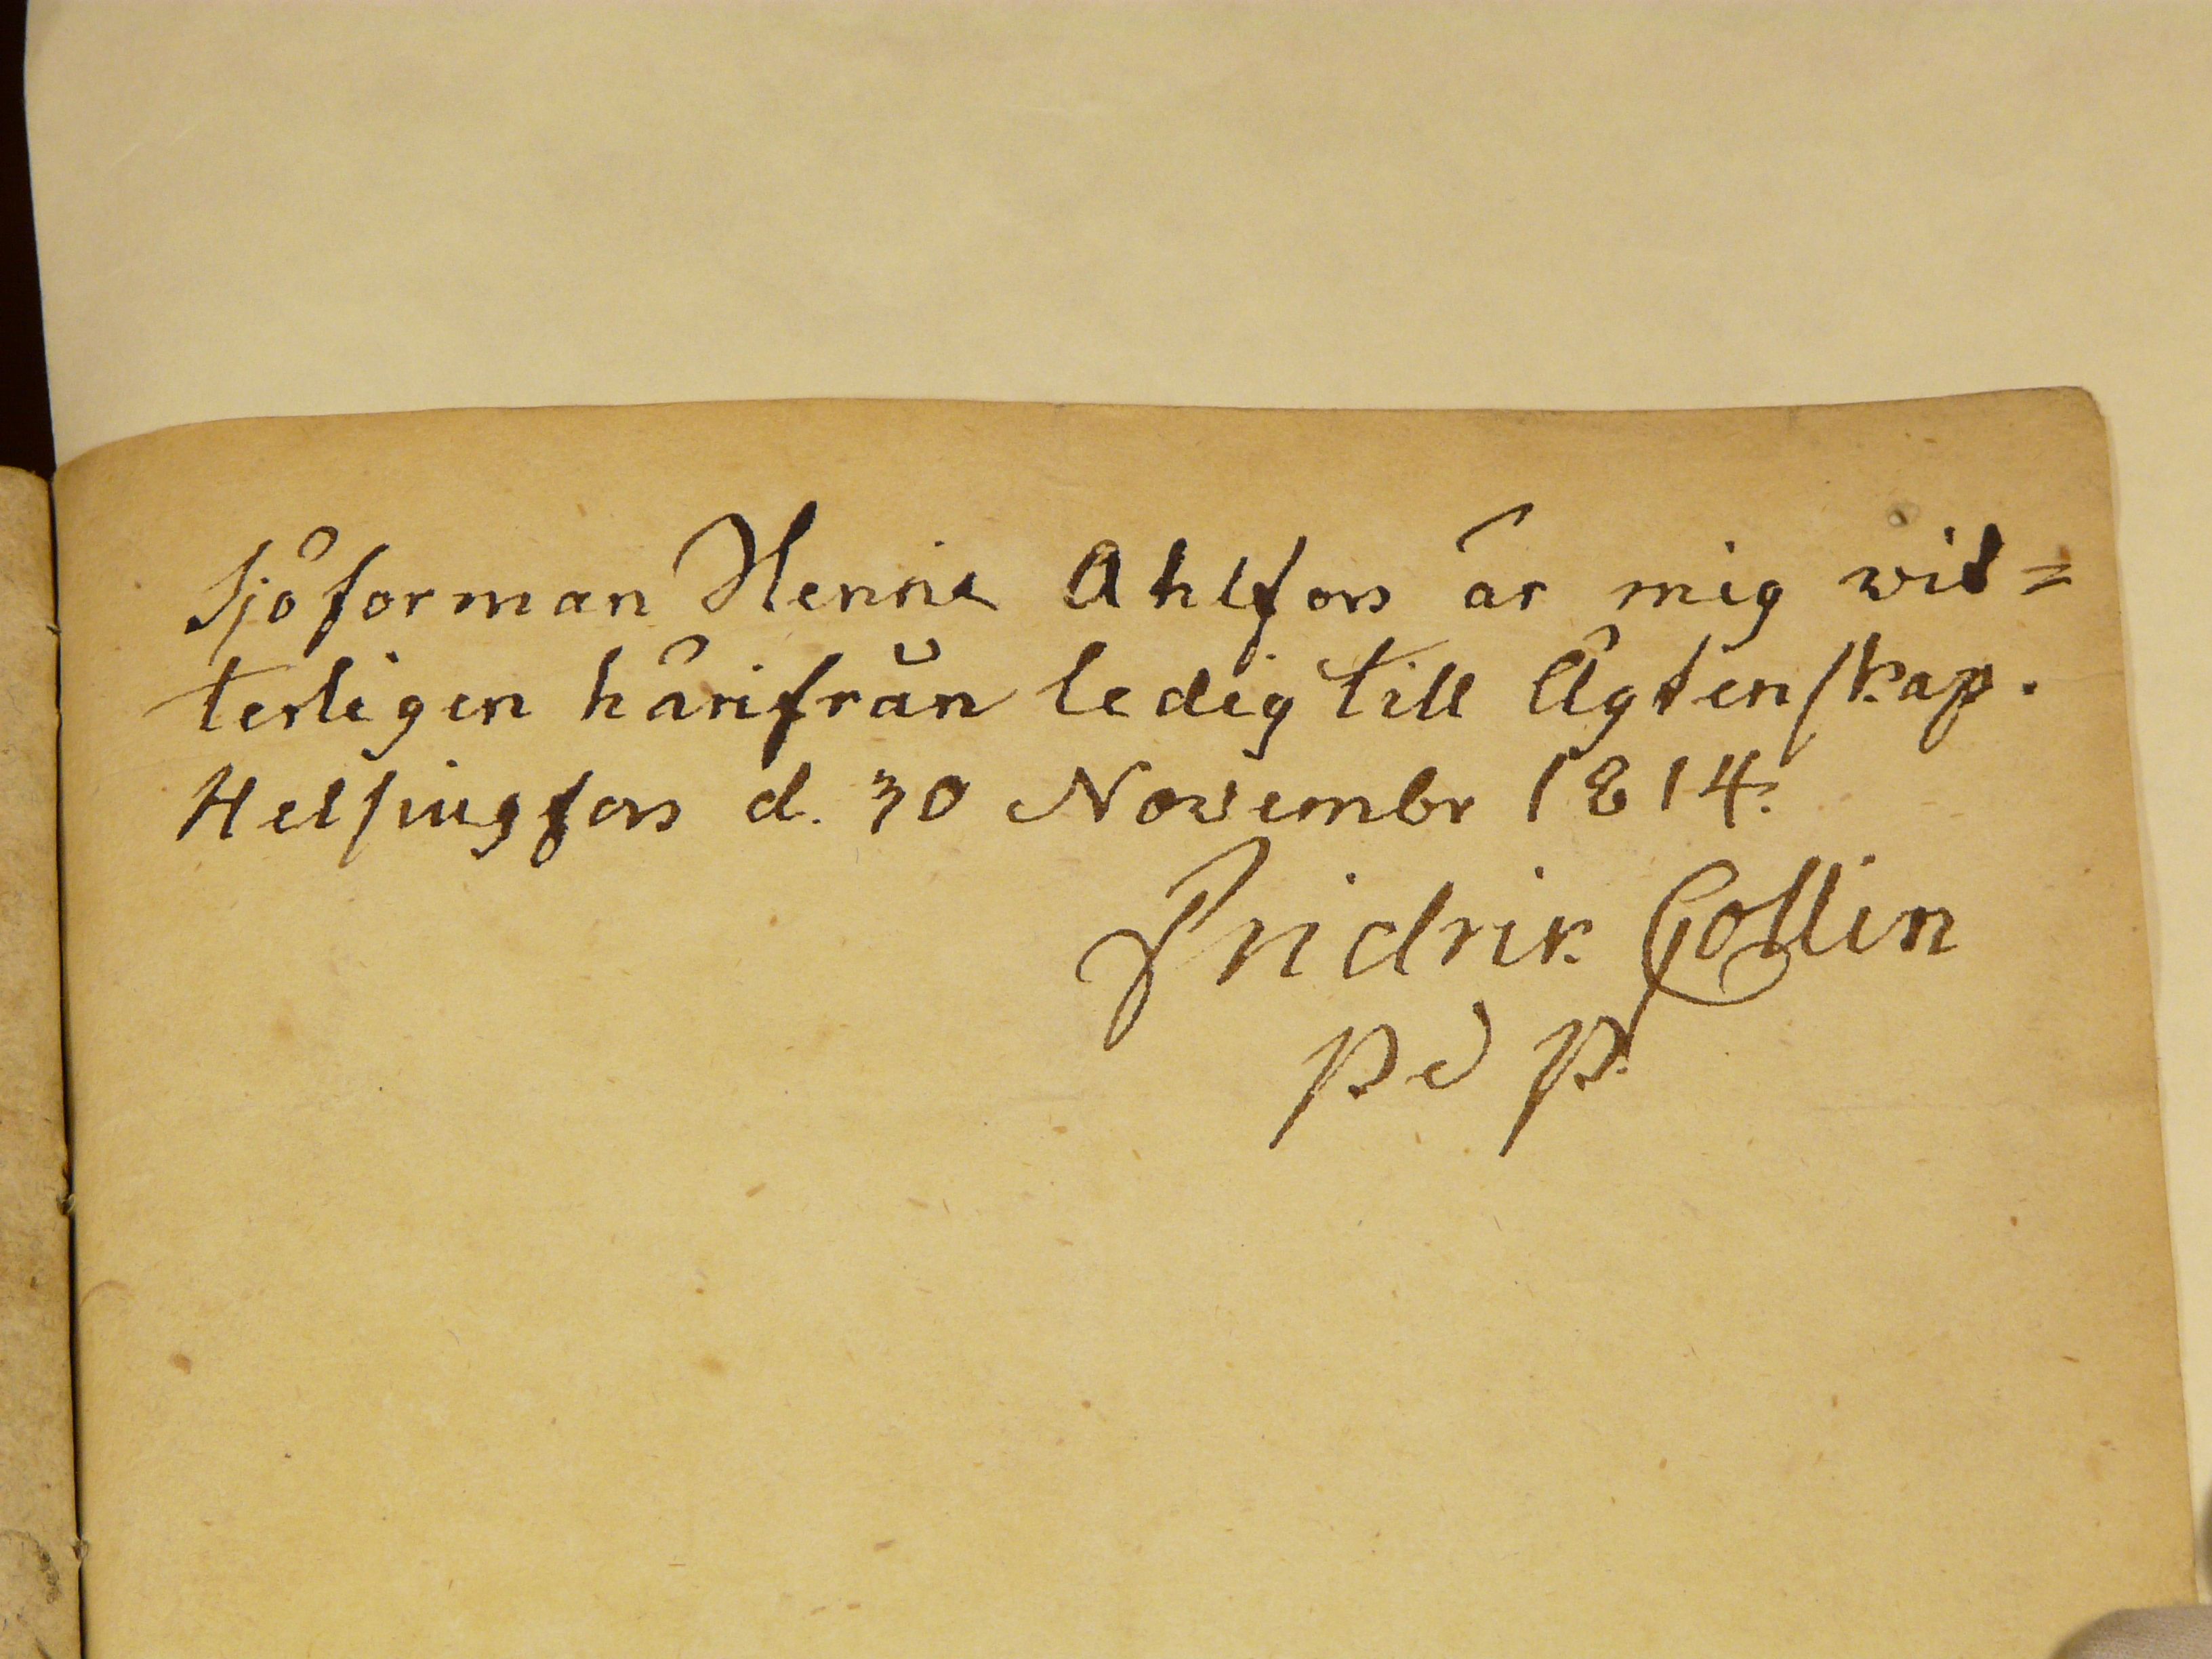 Sjöforman Henric Ahlfors är mig wit=
terligen härifrån ledig till Ägtenskap.
Helsingfors d. 30 Novembr 1814.
Fridrik Collin